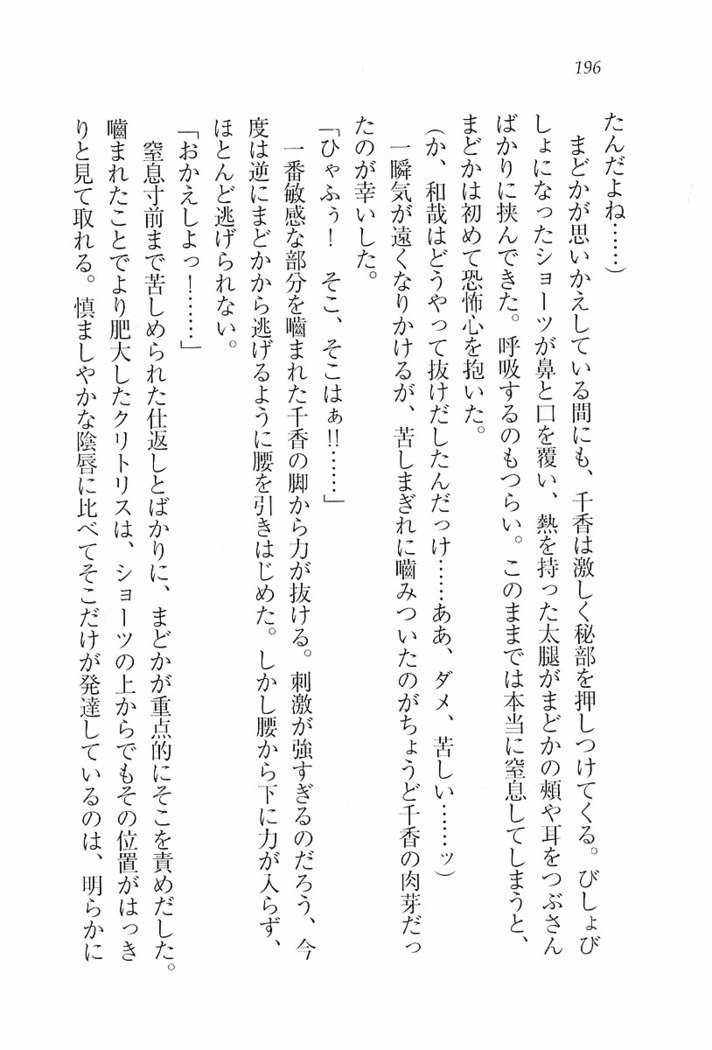 196
たんだよね……)
　まどかが思いかえしている間にも、千香は激しく秘部を押しつけてくる。びしょび
しょになったショーツが鼻と口を覆い、熱を持った太腿がまどかの頰や耳をつぶさん
ばかりに挟んできた。呼吸するのもつらい。このままでは本当に窒息してしまうと、
まどかは初めて恐怖心を抱いた。
(か、和哉はどうやって抜けだしたんだっけ……ああ、ダメ、苦しい……ッ)
　一瞬気が遠くなりかけるが、苦しまぎれに嚙みついたのがちょうど千香の肉芽だっ
たのが幸いした。
「ひゃふぅ！　そこ、そこはぁ!!……」
　一番敏感な部分を嚙まれた千香の脚から力が抜ける。刺激が強すぎるのだろう、今
度は逆にまどかから逃げるように腰を引きはじめた。しかし腰から下に力が入らず、
ほとんど逃げられない。
「おかえしよっ！……」
　窒息寸前まで苦しめられた仕返しとばかりに、まどかが重点的にそこを責めだした。
嚙まれたことでより肥大したクリトリスは、ショーツの上からでもその位置がはっき
りと見て取れる。慎ましやかな陰唇に比べてそこだけが発達しているのは、明らかに